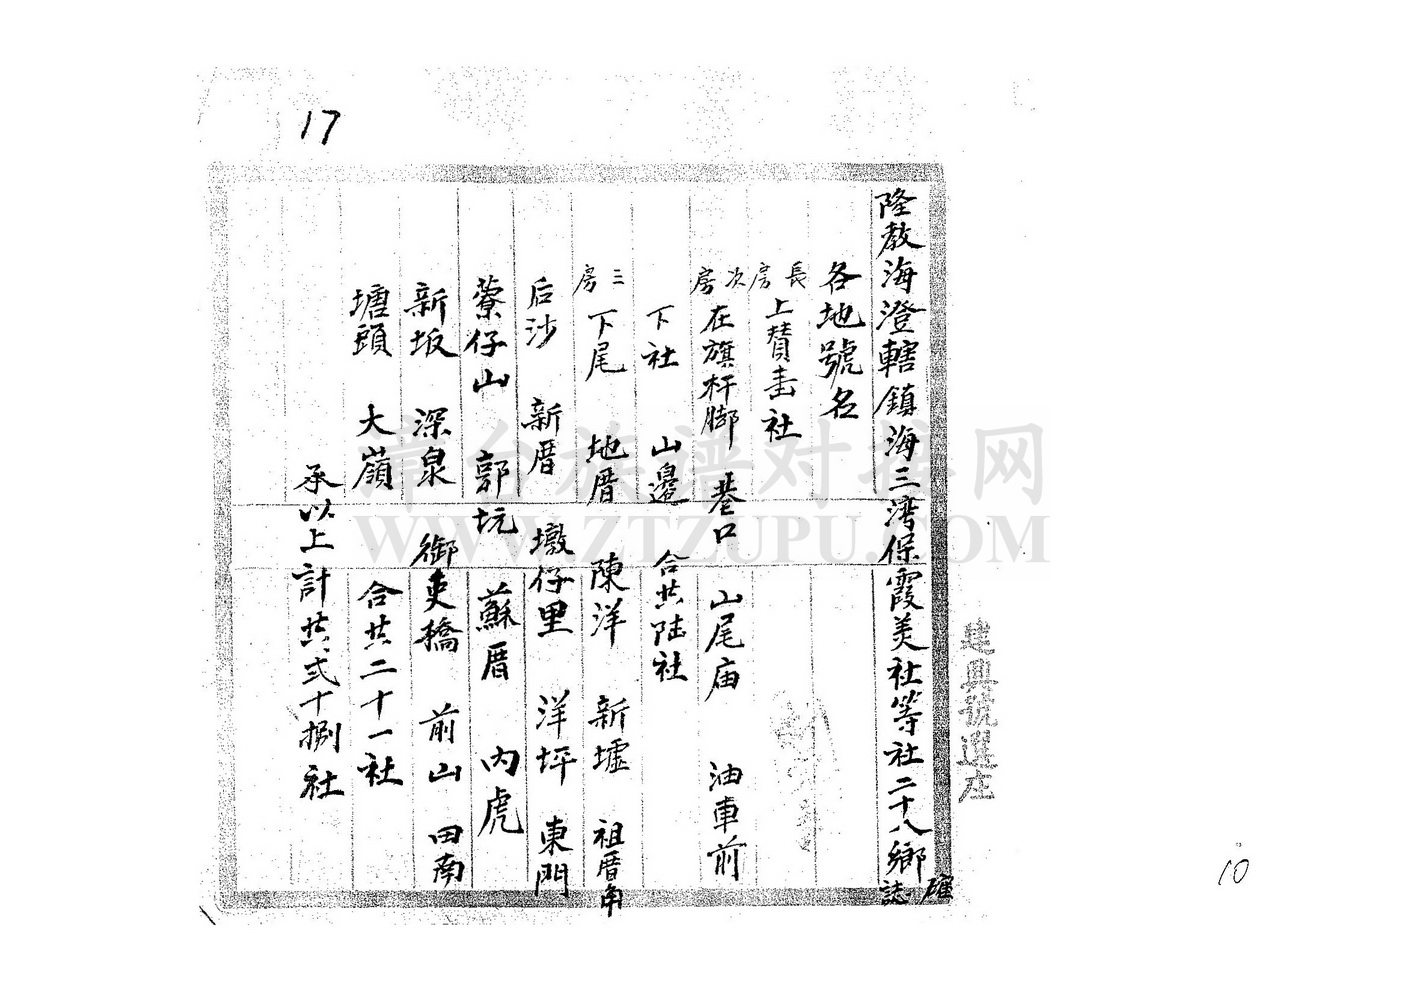 17
隆教海澄轄鎮海三湾保霞美社等社二十八鄉
誌
各地號名
長房 上贊社
次房 在旗杆脚 巷口 山尾庙 油車前
下社 山邊 合共陆社
三房 下尾 地厝 陳洋 新墟 祖厝角
后沙 新厝 墩仔里 洋坪 東門
藔仔山 郭坑 蘇厝 内虎
新坂 深泉 御吏橋 前山 田南
塘頭 大嶺 合共二十一社
承以上計共弍十捌社
建興號選庄
漳台族谱对接网
WWW.ZTZUPU.COM
10